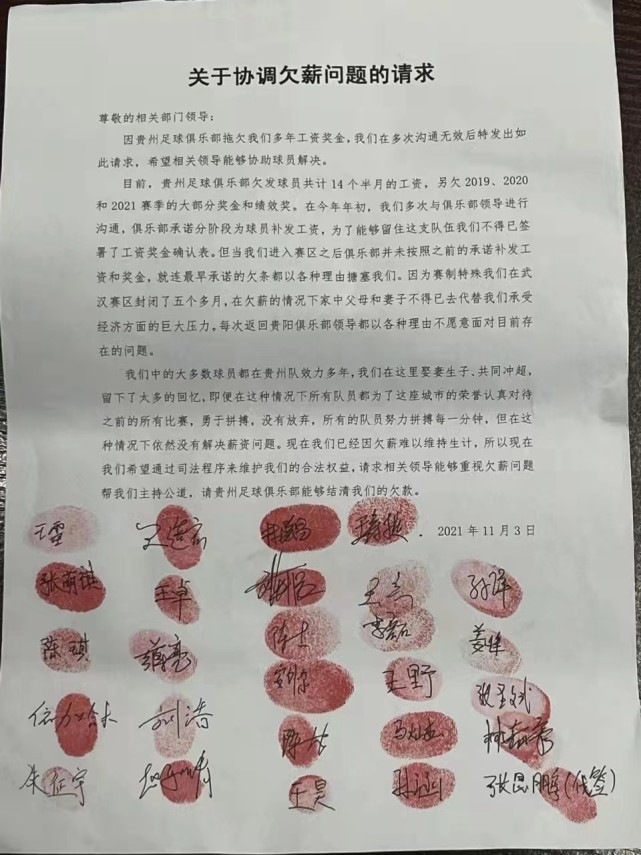 关于协调欠薪问题的请求
尊敬的相关部门领导：
因贵州足球俱乐部拖欠我们多年工资奖金，我们在多次沟通无效后特发出如
此请求，希望相关领导能够协助球员解决。
目前，贵州足球俱乐部欠发球员共计 14 个半月的工资，另欠 2019、2020
和 2021 赛季的大部分奖金和绩效奖。在今年年初，我们多次与俱乐部领导进行
沟通，俱乐部承诺分阶段为球员补发工资，为了能够留住这支队伍我们不得已签
署了工资奖金确认表。但当我们进入赛区之后俱乐部并未按照之前的承诺补发工
资和奖金，就连最早承诺的欠条都以各种理由搪塞我们。因为赛制特殊我们在武
汉赛区封闭了五个多月，在欠薪的情况下家中父母和妻子不得已去代替我们承受
经济方面的巨大压力。每次返回贵阳俱乐部领导都以各种理由不愿意面对目前存
在的问题。
我们中的大多数球员都在贵州队效力多年，我们在这里娶妻生子、共同冲超，
留下了太多的回忆，即便在这种情况下所有队员都为了这座城市的荣誉认真对待
之前的所有比赛，勇于拼搏，没有放弃，所有的队员努力拼搏每一分钟，但在这
种情况下依然没有解决薪资问题。现在我们已经因欠薪难以维持生计，所以现在
我们希望通过司法程序来维护我们的合法权益，请求相关领导能够重视欠薪问题
帮我们主持公道，请贵州足球俱乐部能够结清我们的欠款。
2021 年 11 月 3 日
王卓
陈琪
王野
刘浩
朱征宇 王昊 张昆鹏(代签)